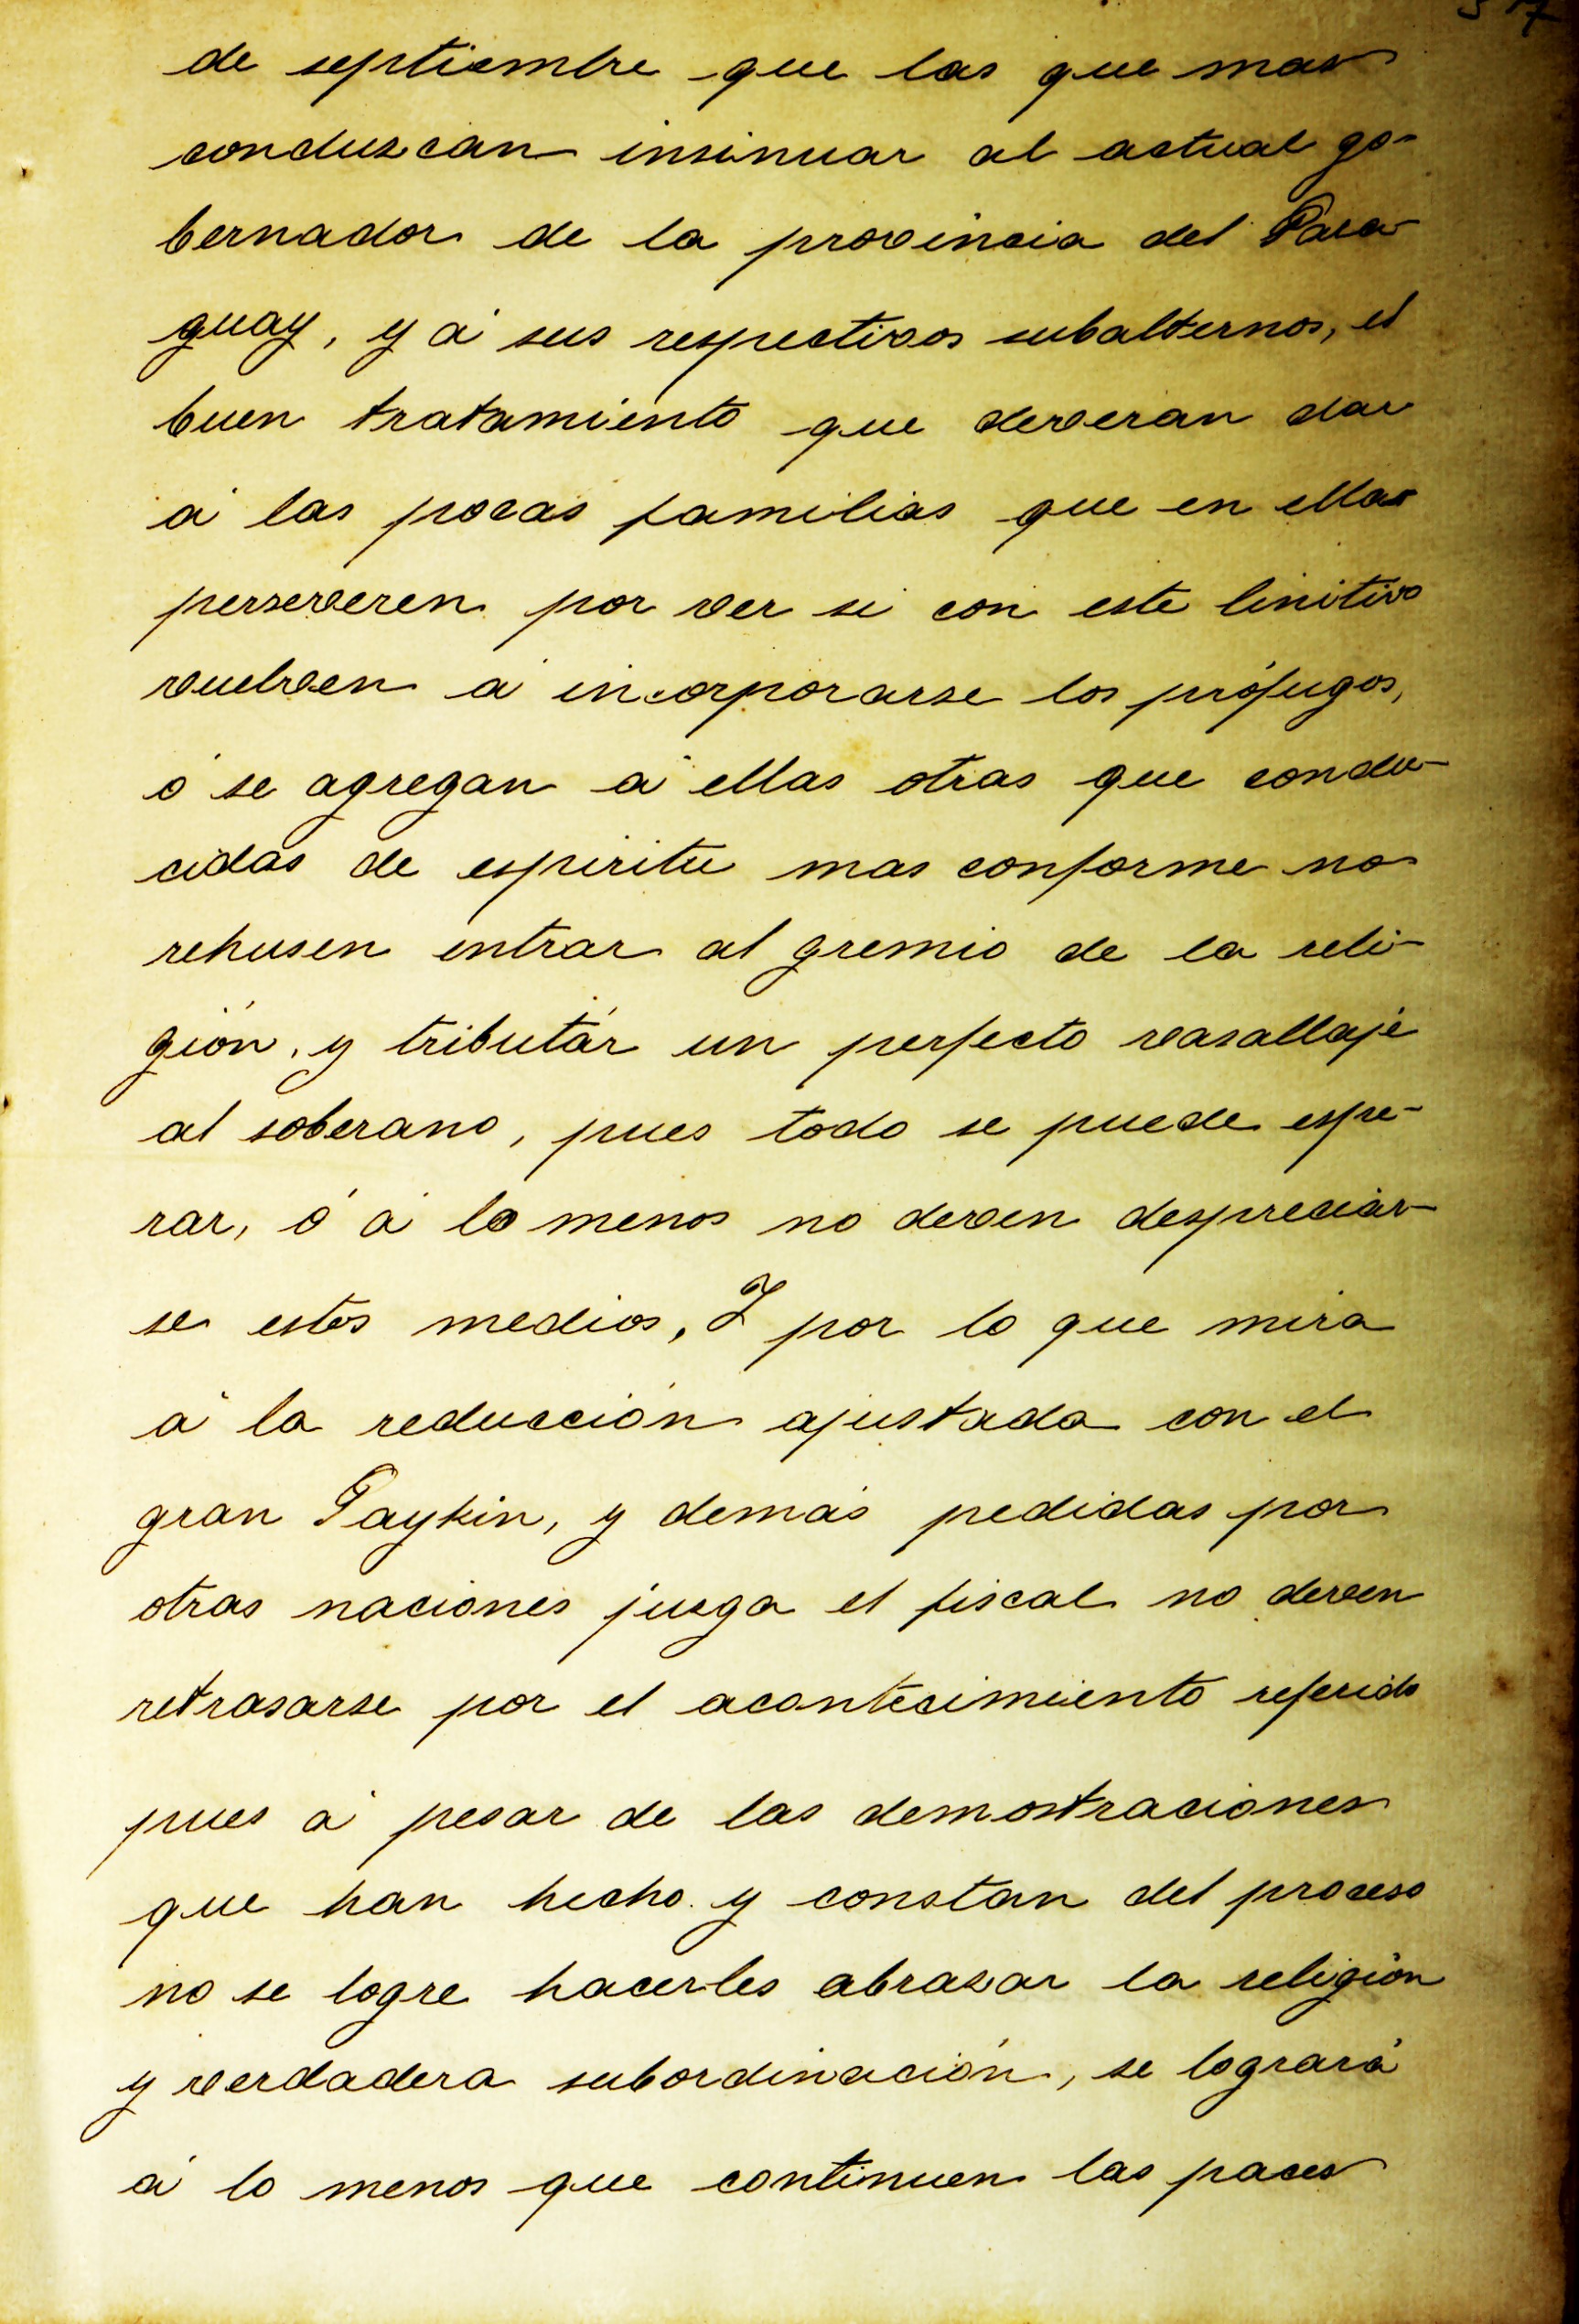 de septiembre que las que mas
conduscan insinuar al actual go-
bernador de la provincia del Para-
guay, y á sus respectivos subalternos, el
buen tratamiento que deveran dar
á las pocas familias que en ellas
perseveren por ver si con este linitivo
vuelven á incorporarse los prófugos,
ó se agregan á ellas otras que condu-
cidas de espiritu mas conforme no
rehusen entrar al gremio de la reli-
gión, y tributár un perfecto vasallaje
al soberano, pues todo se puede espe-
rar, ó á lo menos no deven despreciar-
se estos medios, I por lo que mira
á la reducción ajustada con el
gran Paykin, y demás pedidas por
otras naciones jusga el fiscal no deven
retrasarse por el acontecimiento referido
pues á pesar de las demostraciones
que han hecho y constan del proceso
no se logre hacerles abrasar la religión
y verdadera subordinación, se logrará
á lo menos que continuen las paces